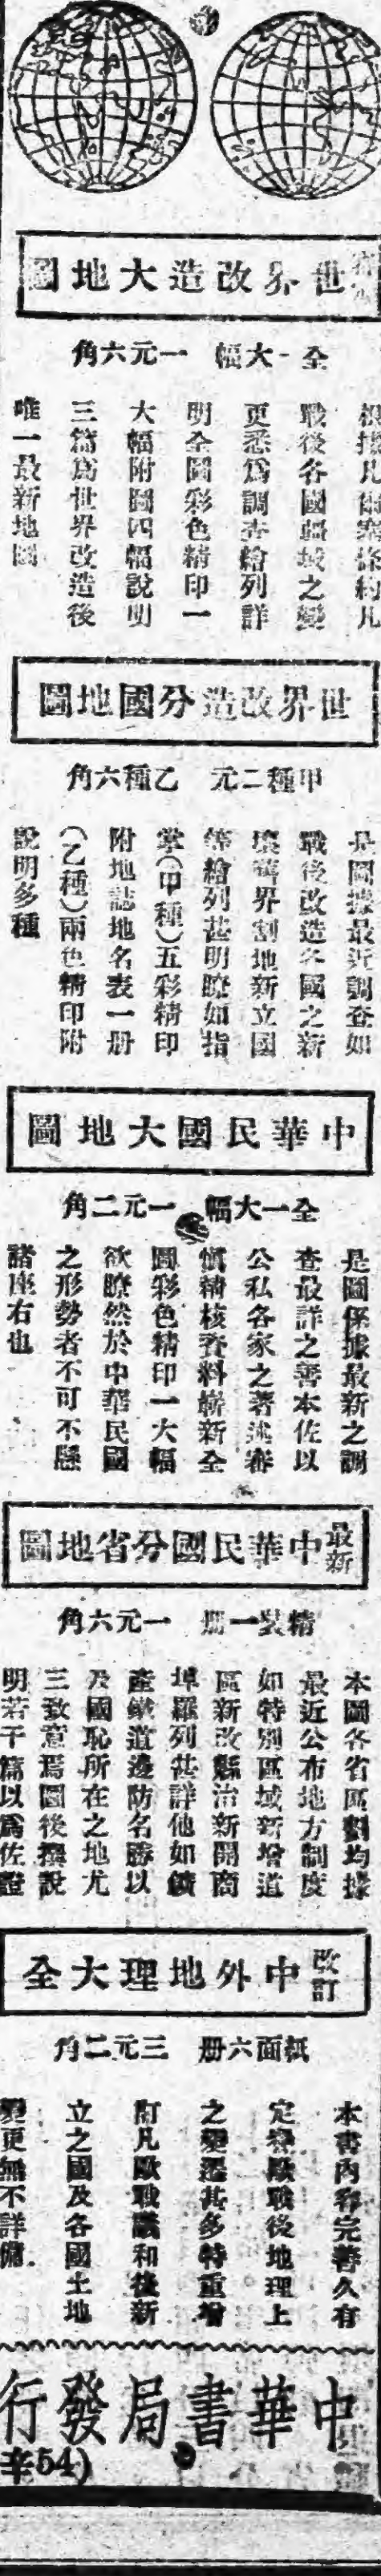 世界改造大地圖
全一大幅　一元六角
根據凡爾塞條約凡
戰後各國疆域之變
更悉爲調查繪列詳
明全圖彩色精印一
大幅附圖四幅說明
三篇爲世界改造後
唯一最新地圖
世界改造分國地圖
甲種二元　乙種六角
是圖據最近調查如
戰後改造各國之新
壤舊界割地新立國
等繪列甚明瞭如指
掌(甲種)五彩精印
附地誌地名表一册
(乙種)兩色精印附
說明多種
中華民國大地圖
全一大幅　一元二角
是圖係據最新之調
查最詳之善本佐以
公私各家之著述審
慎精核資料嶄新全
圖彩色精印一大幅
欲瞭然於中華民國
之形勢者不可不懸
諸座右也
最新中華民國分省地圖
精裝一册　一元六角
本圖各省區劃均據
最近公布地方制度
如特別區域新增道
區新改縣治新開商
埠羅列甚詳他如鑛
產鐵道邊防名勝以
及國恥所在之地尤
三致意焉圖後撰說
明若干篇以爲佐證
改訂中外地理大全
紙面六册　三元二角
本書內容完善久有
定評歐戰後地理上
之變遷甚多特重增
訂凡歐戰議和後新
立之國及各國土地
變更無不詳備
中華書局發行
辛54)